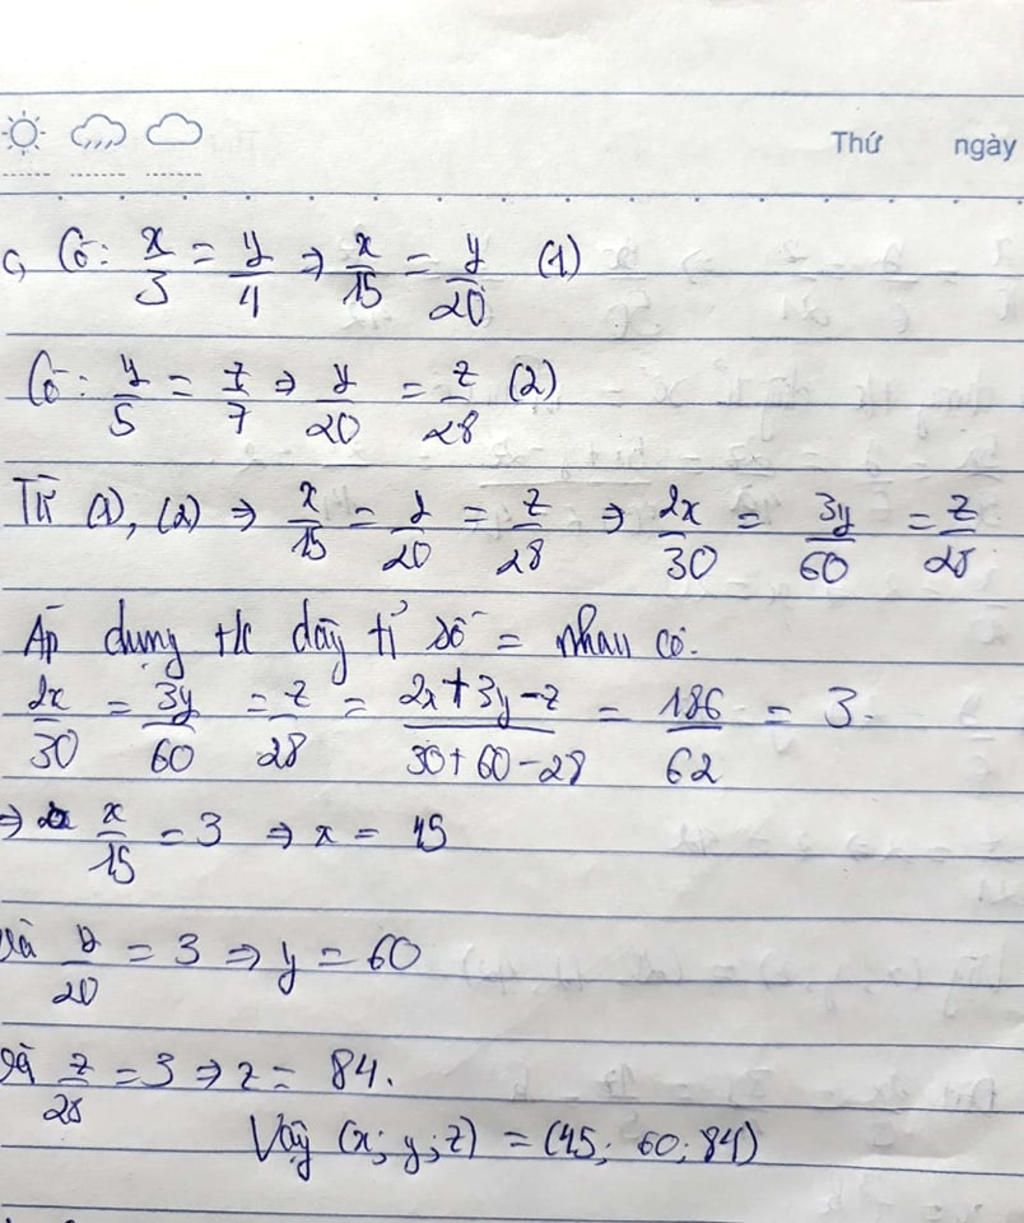 Thứ ngày
c, Có: x/3 = y/4 ⇒ x/15 = y/20 (1)
Có: y/5 = z/7 ⇒ y/20 = z/28 (2)
Từ (1), (2) ⇒ x/15 = y/20 = z/28 ⇒ 2x/30 = 3y/60 = z/28
Áp dụng t/c dãy tỉ số = nhau có.
2x/30 = 3y/60 = z/28 = (2x+3y-z)/(30+60-28) = 186/62 = 3.
⇒ x/15 = 3 ⇒ x = 45
và y/20 = 3 ⇒ y = 60
và z/28 = 3 ⇒ z = 84.
Vậy (x; y; z) = (45; 60; 84)